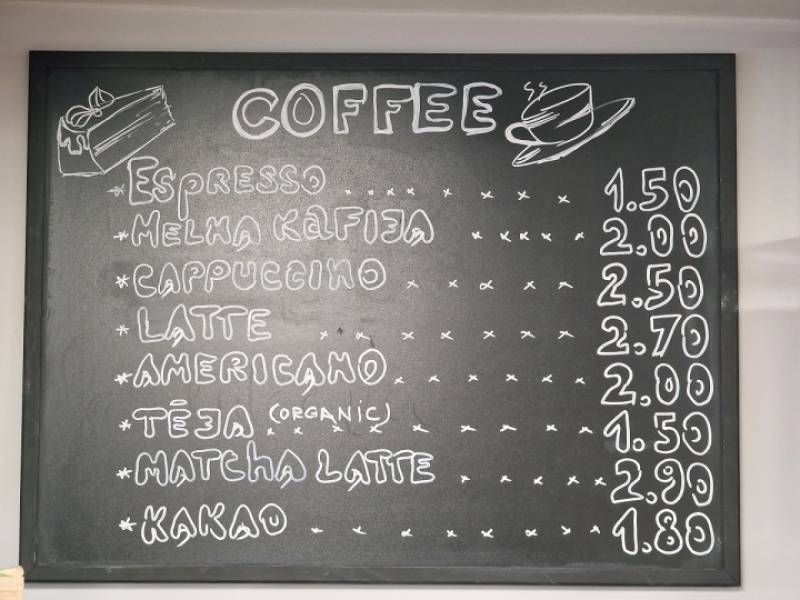 COFFEE
*ESPRESSO . . . . x x x x 1.50
*MELNA KAFIJA x x x x x 2.00
*CAPPUCCINO x x x x x 2.50
*LATTE x x x x x x x 2.70
*AMERICANO x x x x x x 2.00
*TĒJA (ORGANIC) x x x x x x x x 1.50
*MATCHA LATTE x x x x x 2.90
*KAKAO x x x x x x x x 1.80